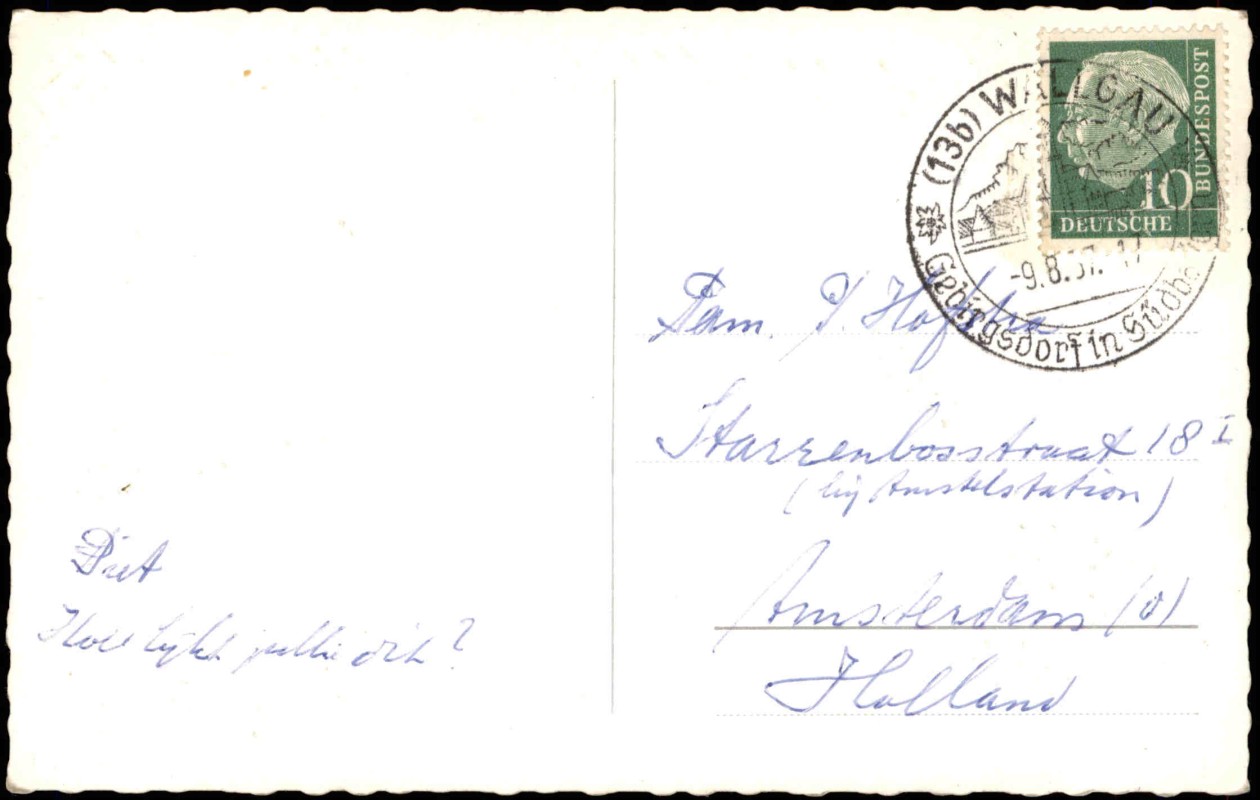 BUNDESPOST
10
DEUTSCHE
(13b) WALLGAU
-9.8.57.-17
Gebirgsdorf in Südb
Fam. P/ Hofstra
Starrenbosstraat 18 I
(bij Amstelstation)
Amsterdam (O)
Holland
Piet
Hoe lijkt jullie dit?